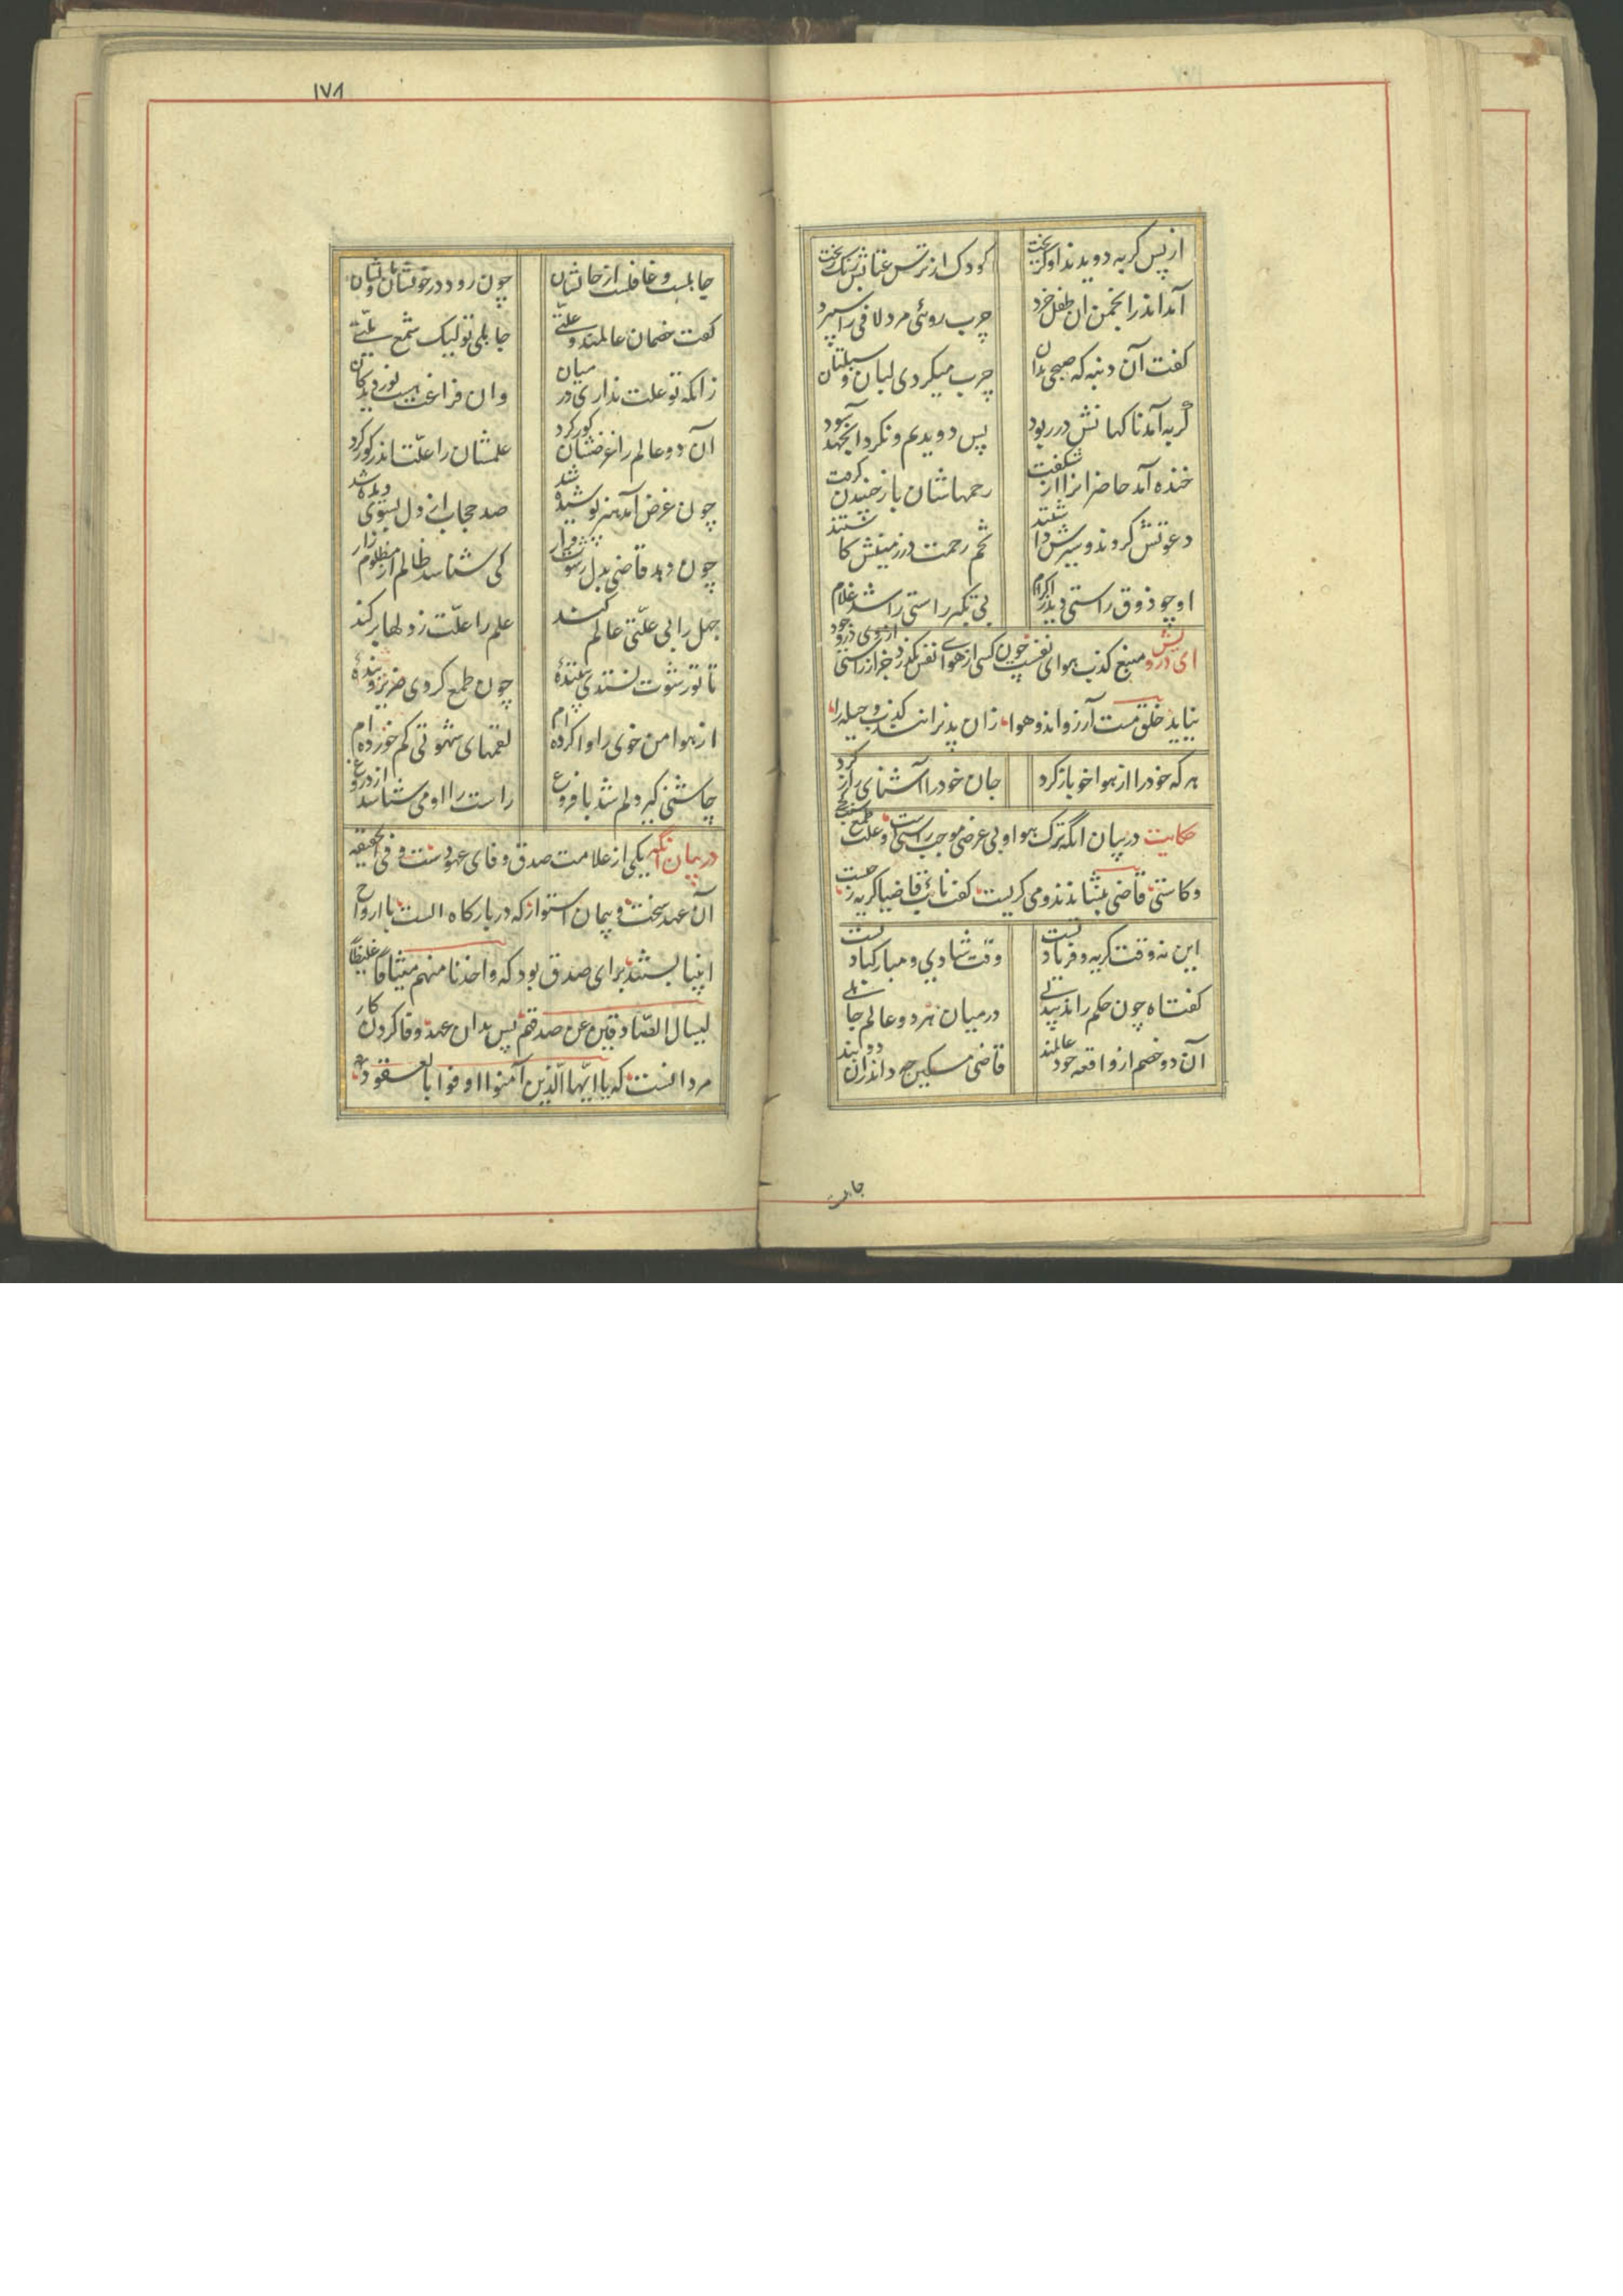 از پس گربه دویدند او گریخت
کودک از ترس عتابش رنگ ریخت
آمد اندر انجمن آن طفل خرد
چرب روئی مرد لافی را سپرد
کفت آن دنبه که صبحی بدان
چرب میکردی لبان و سبلتان
گربه آمد ناکهانش در ربود
پس دویدیم و نکرد آن جهد سود
خنده آمد حاضرانرا از شکفت
رحمهاشان باز جنبیدن کرفت
دعوتش کردند و سیرش داشتند
تخم رحمت در زمینش کاشتند
او چو ذوق راستی دید از کرام
بی تکبر راستی را شد غلام
ای درویش منبع کذب هوای نفس است چون کسی از هوای نفس نکذرد جز از راستی از وی در وجود
نیاید خلق مست آرزواند و هوا زان پذیرانند کذب و حیله را
هر که خود را از هوا خو باز کرد
جان خود را آشنای راز کرد
حکایت در بیان آنکه ترک هوا و بی غرضی موجب راستی است و علت طمع سبب کجی
و کاستی قاضی بنشاندند و می کریست کفت نائب قاضیا کریه ز چیست
این نه وقت کریه و فریاد تست
وقت شادی و مبارکباد تست
کفت اه چون حکم راند بیدلی
در میان هر دو عالم جاهلی
آن دو خصم از واقعه خود عالمند
قاضی مسکین چه داند زان دو بند
جاهلست
١٧٨
جاهلست و غافلست از حالشان
چون رود در خونشان و مالشان
کفت خصمان عالمند و علتی
جاهلی تو لیک شمع ملتی
زانکه تو علت نداری در میان
وان فراغت هست نور دیدکان
آن دو عالم را غرضشان کور کرد
علمشان را علت اندر کور کرد
چون غرض آمد هنر پوشیده شد
صد حجاب از دل بسوی دیده شد
چون دهد قاضی بدل رشوت قرار
کی شناسد ظالم از مظلوم زار
جهل را بی علتی عالم کند
علم را علت ز دلها بر کند
تا تو رشوت نستدی بیننده
چون طمع کردی ضریر و بنده
از هوا من خوی را وا کرده ام
لقمهای شهوتی کم خورده ام
چاشنی کیر دلم شد با فروغ
راست را او می شناسد از دروغ
در بیان آنکه یکی از علامت صدق وفای عهودست و فی الحقیقه
آن عهد سخت و پیمان استوار که در بارکاه الست با ارواح
انبیا بستند برای صدق بود که واخذنا منهم میثاقا غلیظا
لیسال الصادقین عن صدقهم پس بدان عهد وفا کردن کار
مردانست که یا ایها الذین آمنوا اوفوا بالعقود